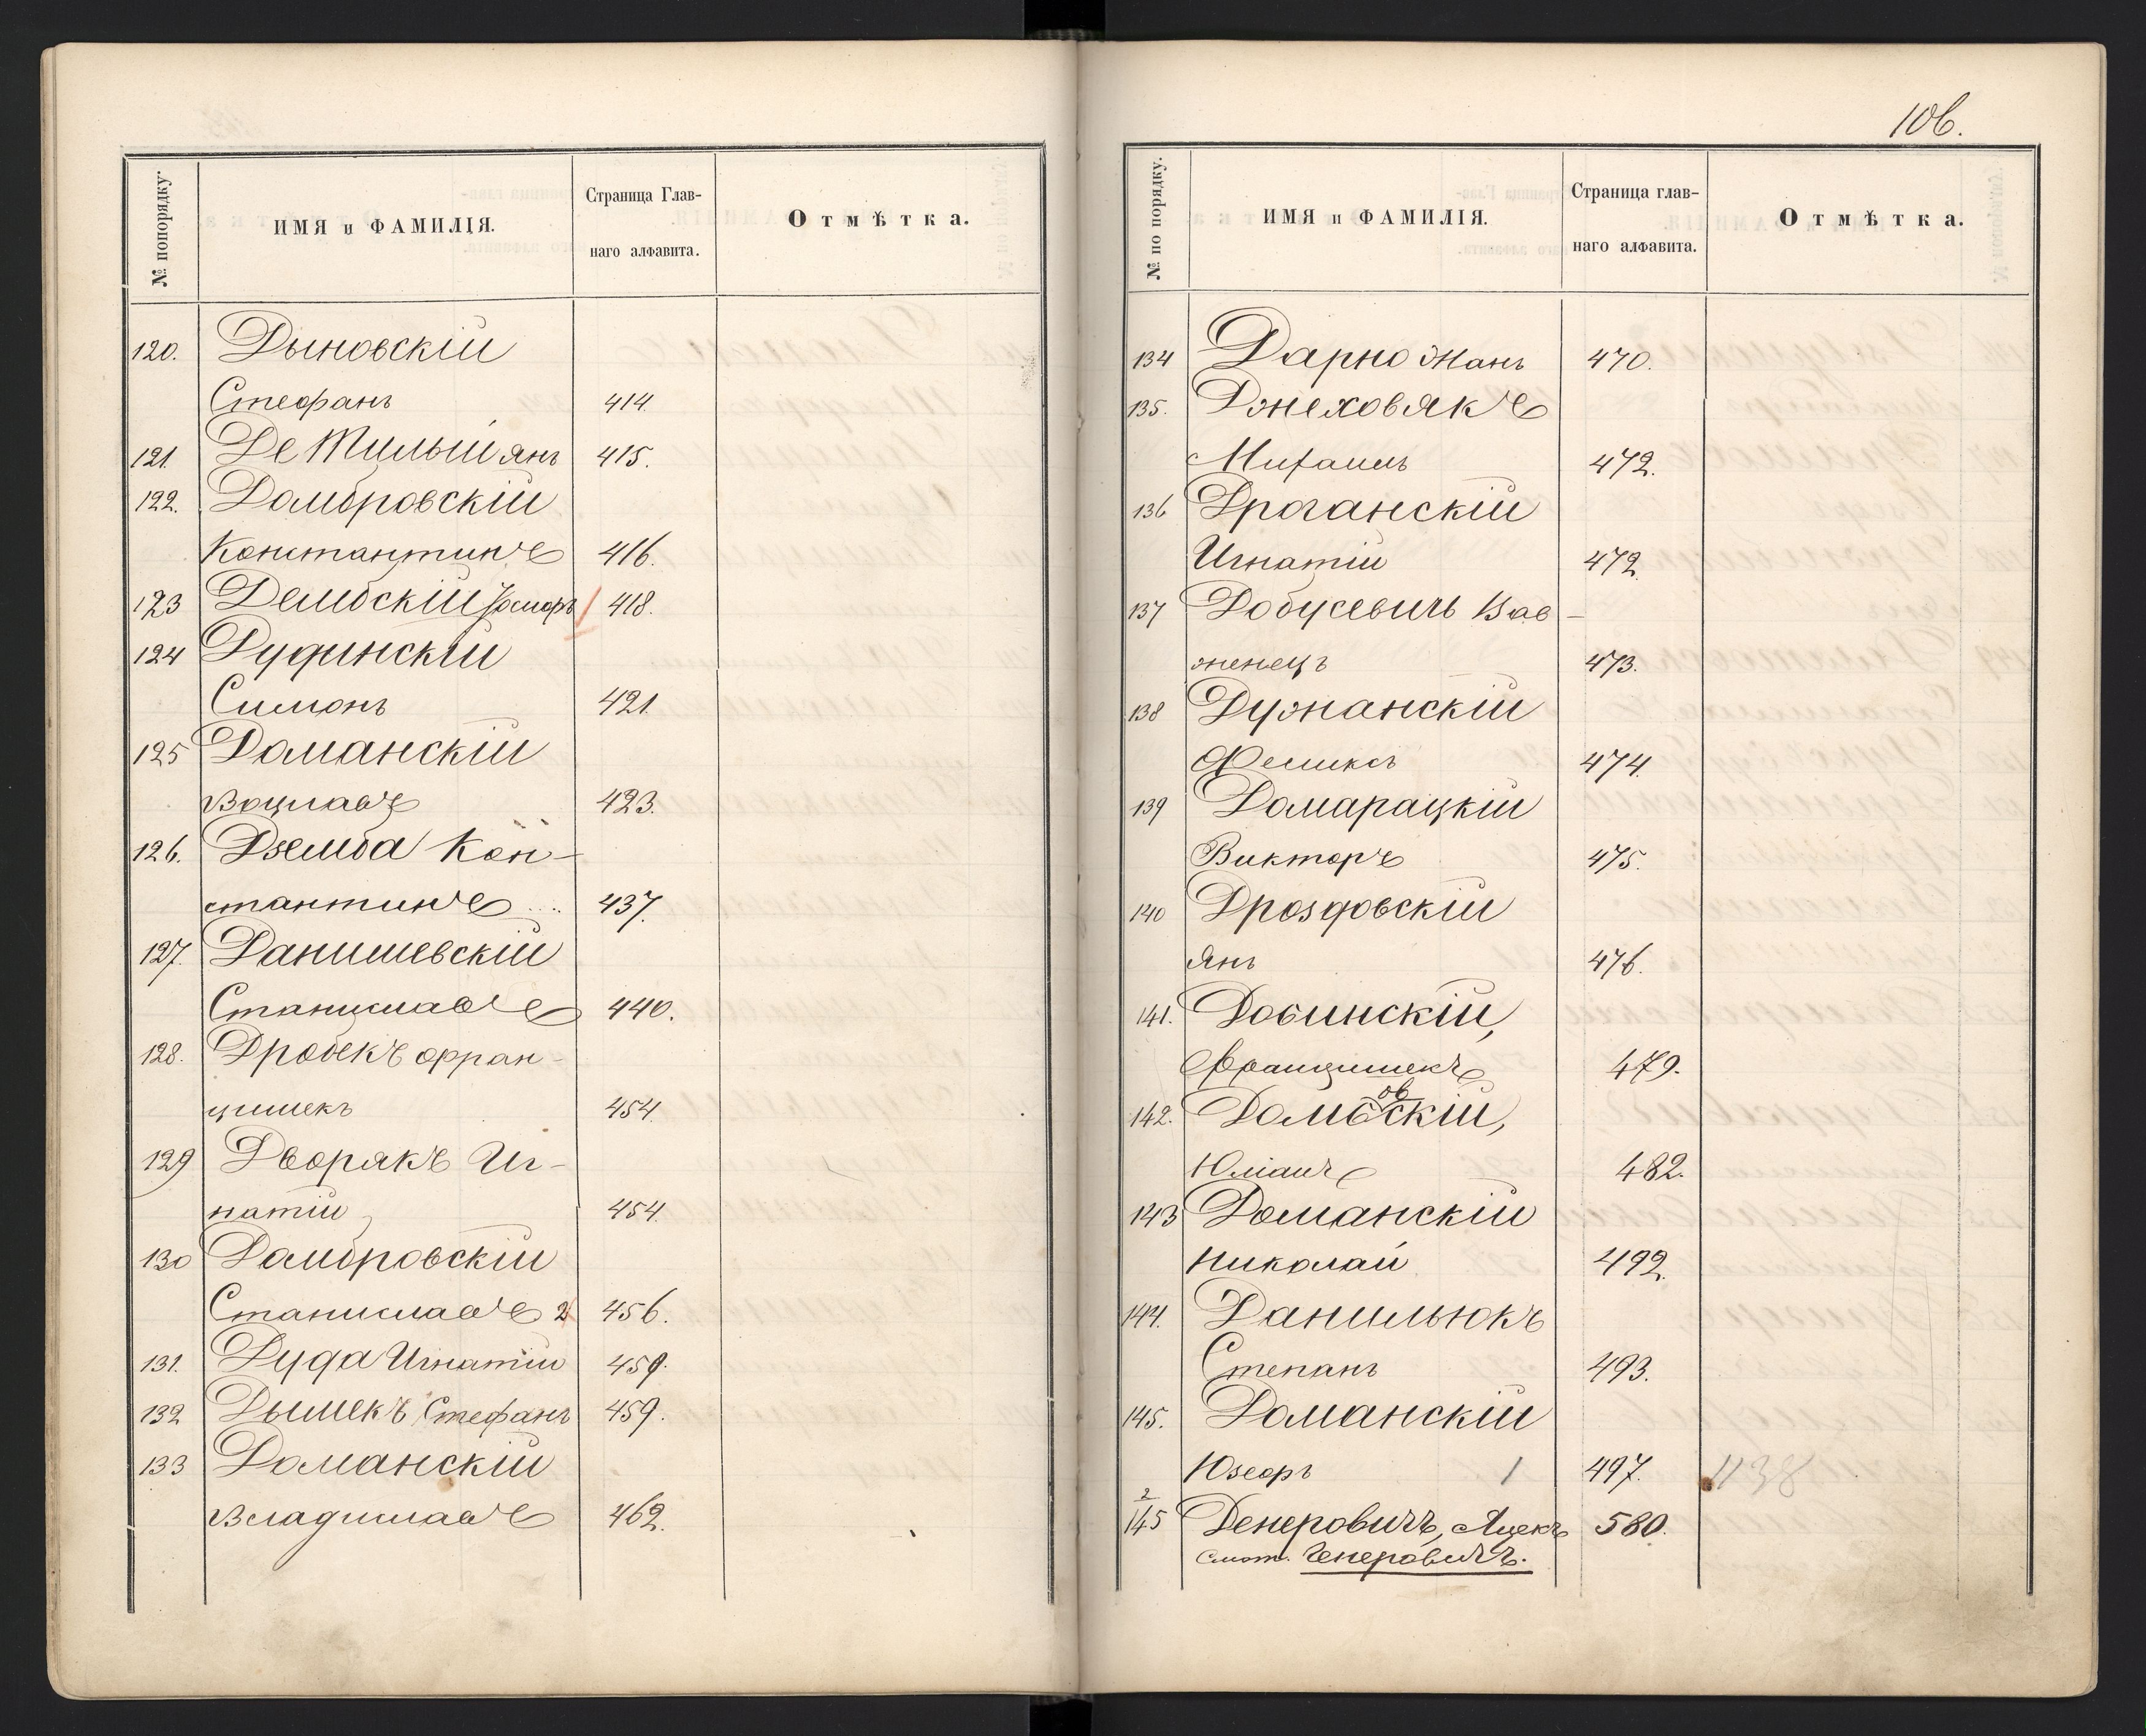 № попорядку.
ИМЯ и ФАМИЛІЯ.
Страница Глав-
наго алфавита.
Отмѣтка.
120. Дыновскій
Стефанъ 414.
121. Де Тилый Янъ 415.
122. Домбровскій
Константинъ 416.
123 Дембскій Іосифъ 418.
124 Дудинскій
Симонъ 421.
125 Доманскій
Вацлавъ 423.
126. Дземба Кон-
стантинъ 437.
127. Данишевскій
Станиславъ 440.
128. Дробекъ Фран-
цишекъ 454.
129 Дворякъ Иг-
натій 454.
130 Домбровскій
Станиславъ 2 456.
131. Дуда Игнатій 459.
132 Дымекъ Стефанъ 459.
133 Доманскій
Владиславъ 462.
106.
№ по порядку.
ИМЯ и ФАМИЛІЯ.
Страница глав-
наго алфавита.
Отмѣтка.
134 Дарно Жанъ 470.
135. Джеховякъ
Михаилъ 472.
136 Дроганскій
Игнатій 472.
137 Добусевичъ Вав-
женецъ 473.
138 Дужанскій
Феликсъ 474.
139 Домарацкій
Викторъ 475.
140 Дроздовскій
Янъ 476.
141. Довинскій,
Францишекъ 479.
ов
142. Домбскій,
Юліанъ 482.
143 Доманскій
Николай 492.
144. Данильюкъ
Степанъ 493.
145. Доманскій
Юзефъ 1 497. 1138
2
145 Денеровичъ, Яцекъ 580.
Смот. Генеровичъ.